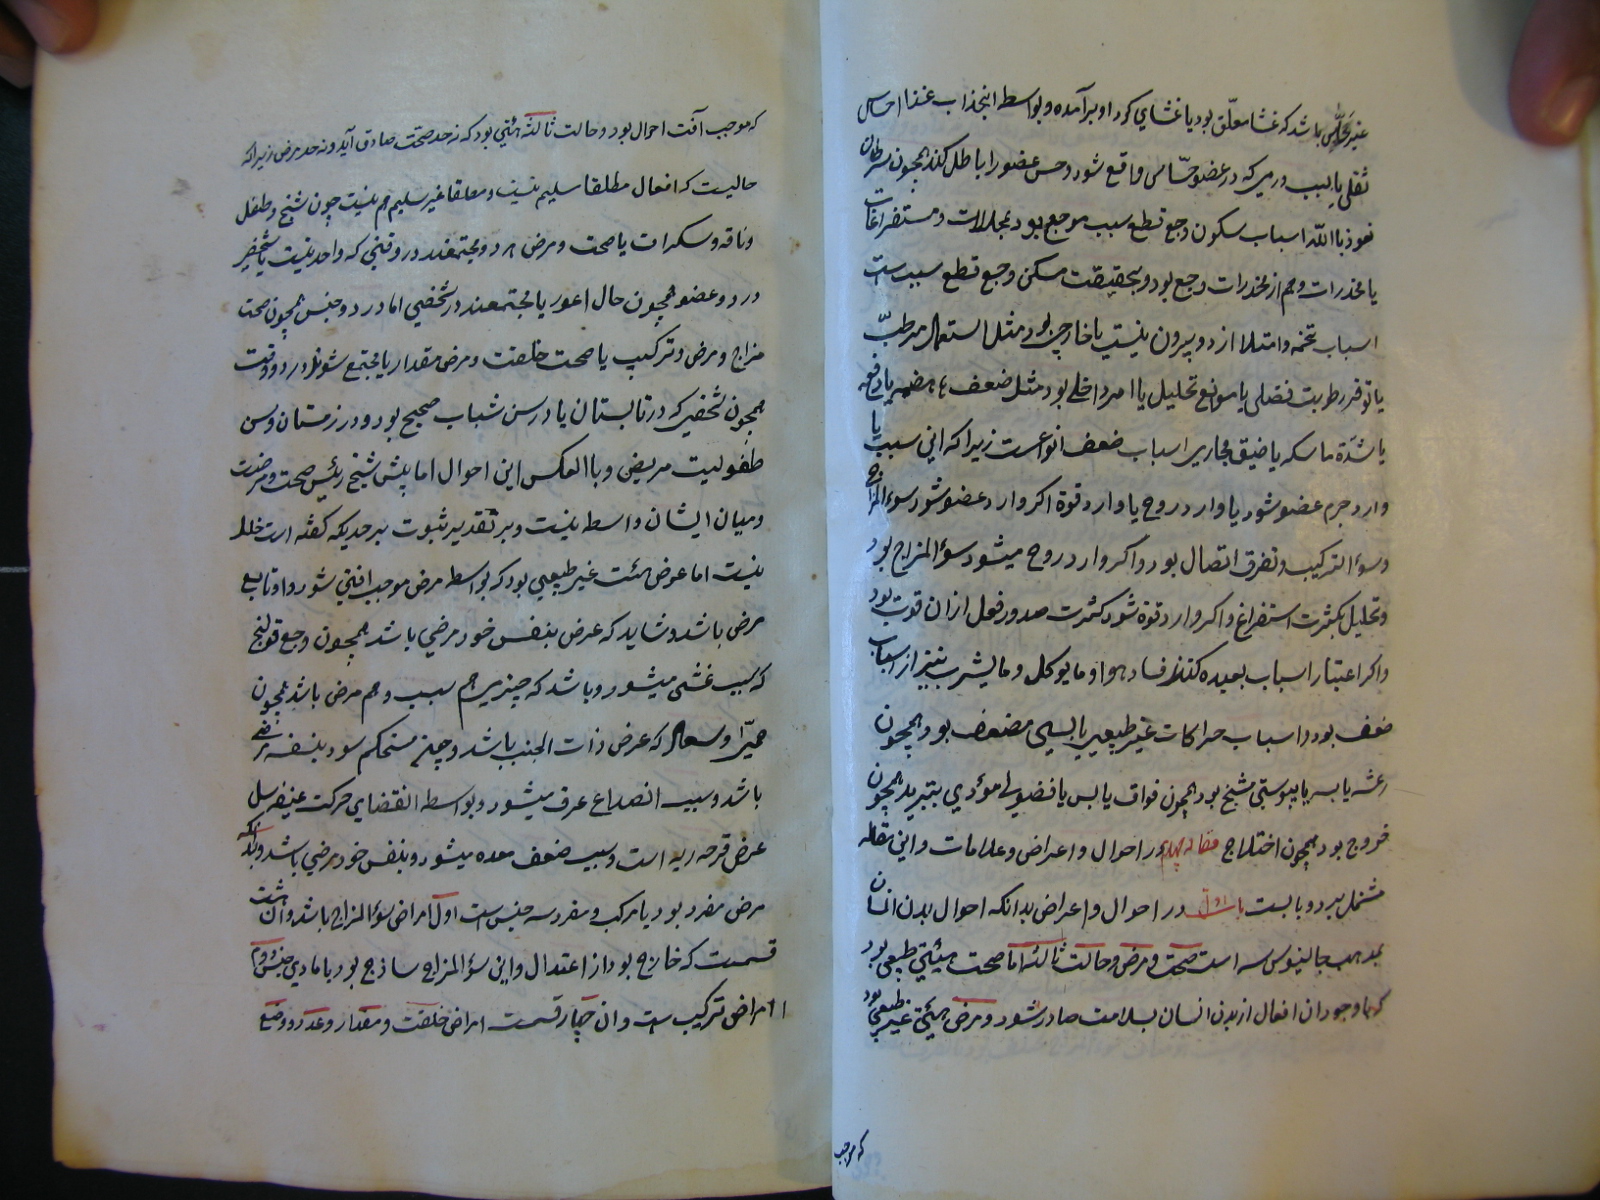 غیر حسّی باشد که غشا معلّق بود یا غشای کرد او برآمده و بواسطه انجذاب غشا احساس
ثقلی یا بسبب ورمی که در عضو حسّاس واقع شود و حس عضو را باطل کند همچون سرطان
نعوذ باالله اسباب سکون وجع قطع سبب موجع بود بمحللات و مستفرغات
یا مخدرات و هم از مخدرات وجع بود و بحقیقت مسکن وجع قطع سبب است
اسباب تخمه و امتلا از دو بیرون نیست یا خارجی بود مثل استعمال مرطبّ
یا توفر رطوبت فضلی یا موانع تحلیل یا امر داخلی بود مثل ضعف هضم یا دافعه
یا شدّة ماسکه یا ضیق مجاری اسباب ضعف انواعست زیرا که این سبب یا
وارد جرم عضو شود یا وارد روح یا وارد قوة اکر وارد عضو شود سوء المزاج
و سوء الترکیب و تفرق اتصال بود و اکر وارد روح میشود سوء المزاج بود
و تحلیل بکثرت استفراغ و اکر وارد قوة شود کثرت صدور فعل ازان قوت بود
و اکر اعتبار اسباب بعیده کنند فساد هوا و ما یوکل و ما یشرب نیز از اسباب
ضعف بود و اسباب حراکات غیر طبیعی یا یبسی مضعف بود همچون
رعشه یابسه یا یبوستی مشنج بود همچون فواق یابس یا فضولی مؤدی بتبرید همچون
خروج بود همچون اختلاج مقاله چهارم در احوال و اعراض و علامات و این مقاله
مشتمل بر دو بابست باب اول در احوال و اعراض بدانکه احوال بدن انسان
بمذهب جالینوس سه است صحت و مرض و حالت ثالثه اما صحت هیئتی طبیعی بود
که با وجود ان افعال از بدن انسان بسلامت صادر شود و مرض هیئتی غیر طبیعی بود
که موجب
که موجب آفت احوال بود و حالت ثالثه هیئتی بود که نه حد صحّت صادق آید و نه حد مرض زیرا که
حالیست که افعال مطلقا سلیم نیست و مطلقا غیر سلیم هم نیست چون شیخ و طفل
و ناقه و سکرات یا صحت و مرض هر دو مجتمعند در وقتی که واحد نیست یا شخصی
در دو عضو همچون حال اعور یا مجتمعند در شخصی اما در دو جنس همچون صحت
مزاج و مرض و ترکیب یا صحت خلقت و مرض مقدار یا مجتمع شوند در دو وقت
همچون شخصی که در تابستان یا در سن شباب صحیح بود و در زمستان و سن
طفولیت مریض و باالعکس این احوال اما پیش شیخ رئیس صحت و مرضست
و میان ایشان واسطه نیست و بر تقدیر ثبوت بر حدیکه کفته است خلل
نیست اما عرض هیئت غیر طبیعی بود که بواسطه مرض موجب افتی شود و او تابع
مرض باشد و شاید که عرض بنفس خود مرضی باشد همچون وجع قولنج
که سبب غشی میشود و باشد که چیزی هم سبب و هم مرض باشد همچون
حمیّ و سعال که عرض ذات الجنب باشد و چون مستحکم شود بنفسه مرضی
باشد و سبب انصداع عرق میشود و بواسطه انقضای حرکت عنیفه سل
عرض قرحه ریه است و سبب ضعف معده میشود و بنفس خود مرضی باشد و بدانکه
مرض مفرد بود یا مرکب و مفرد سه جنس است اول امراض سوء المزاج باشد و ان هشت
قسمت که خارج بود از اعتدال و این سوء المزاج ساذج بود یا مادی جنس دوم
امراض ترکیب ست و ان چهار قسمت امراض خلقت و مقدار و عدد و وضع